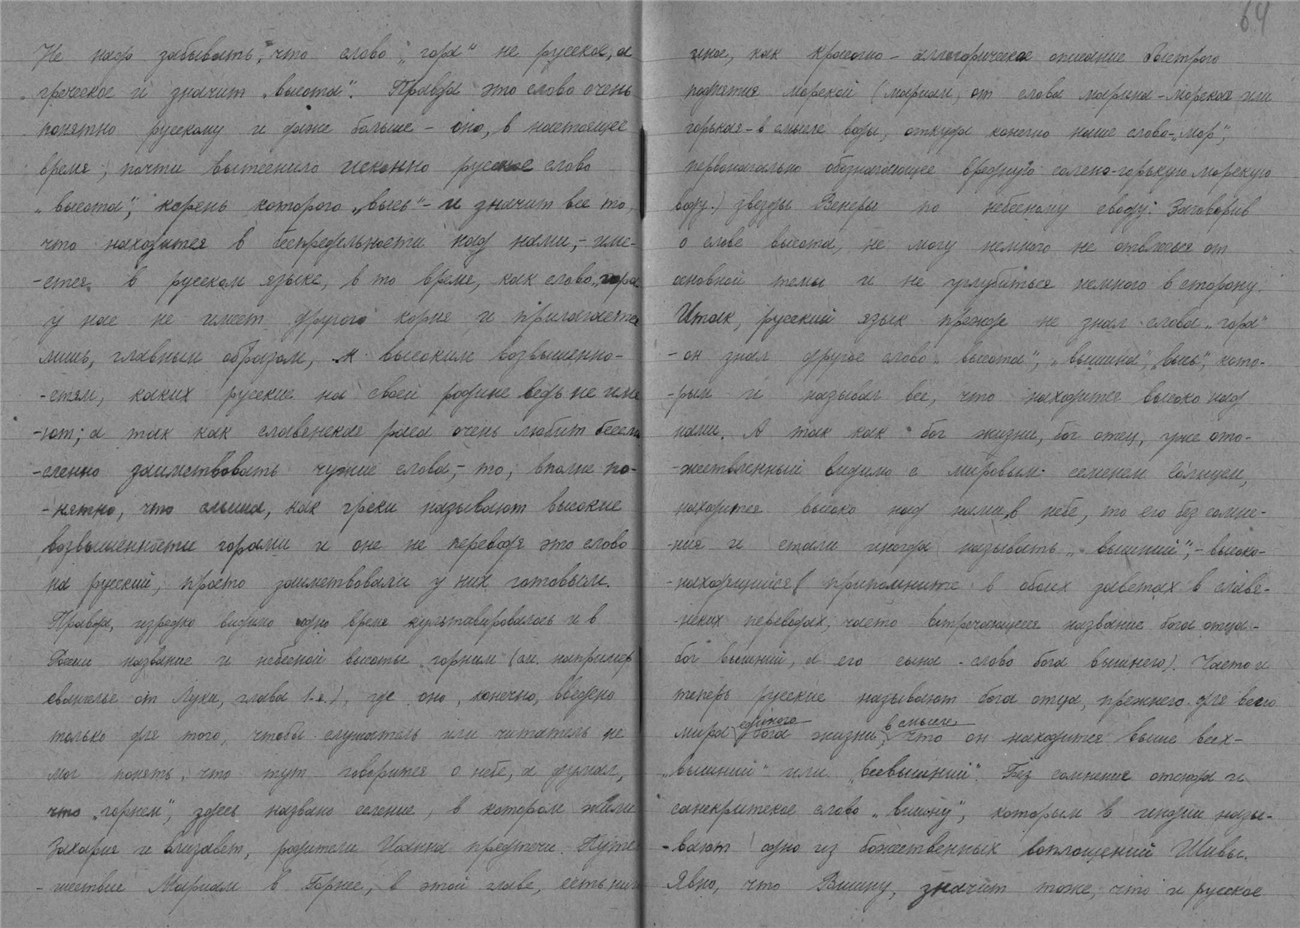 Не надо забывать, что слово „гора" не русское, а
греческое и значит „высота". Правда это слово очень
понятно русскому и даже больше – оно, в настоящее
время, почти вытеснило исконно русское слово
„высота", корень которого „высь" – и значит все то,
что находится в беспредельности над нами, – име-
-ется в русском языке, в то время, как слово „гора
у нас не имеет другого корня и прилагается
лишь, главным образом, к высоким возвышенно-
-стям, каких русские на своей родине ведь не име
-ют; а так как славянская раса очень любит
-сленно заимствовать чужие слова, – то, вполне по-
-нятно, что слыша, как греки называют высокие
возвышенности горами и оне не переводя это слово
на русский, просто заимствовали у них готовым.
Правда, изредка видимо одно время культивировалось и в
название и небесной высоты горним (см. например
евангелье от Луки, глава 1-я), где оно, конечно, введено
только для того, чтобы слушатель или читатель не
мог понять, что тут говорится о небе, а думал,
что „горнем", здесь названо селение, в котором жили
Захария и Елизавет, родители Иоанна предтечи. Путе
-шествие Мариам в Горнее, в этой главе, есть
64
иное, как красочно – аллегорическое описание быстрого
поднятия морской (мариам, от слова марина – морская или
горькая – в смысле воды, откуда конечно наше слово – „мор",
первоначально обозначающее вредную солено-горькую морскую
воду.) звезды Венеры по небесному своду. Заговорив
о слове высота, не могу немного не отвлечься от
основной темы и не углубиться немного в сторону.
Итак, русский язык прежде не знал слова „гора"
– он знал другое слово „высота", „вышина", „высь", кото-
-рым и называл все, что находится высоко над
нами. А так как бог жизни, бог отец, уже ото-
-жествленный видимо с мировым семенем Солнцем,
находится высоко над нами, в небе, то его без сомне-
-ния и стали иногда называть „вышний", – высоко-
-находящийся (припомните в обоих заветах в славян-
-ских переводах, часто встречающееся название бога отца –
бог вышний, а его сына – слово бога вышнего). Часто и
теперь русские называют бога отца, прежнего для всего
мира единого бога жизни, в смысле что он находится выше всех –
„вышний" или „всевышний". Без сомнения отсюда и
санскритское слово „вишну", которым в индии назы-
-вают одно из божественных воплощений Шивы.
Явно, что Вишну, значит тоже, что и русское